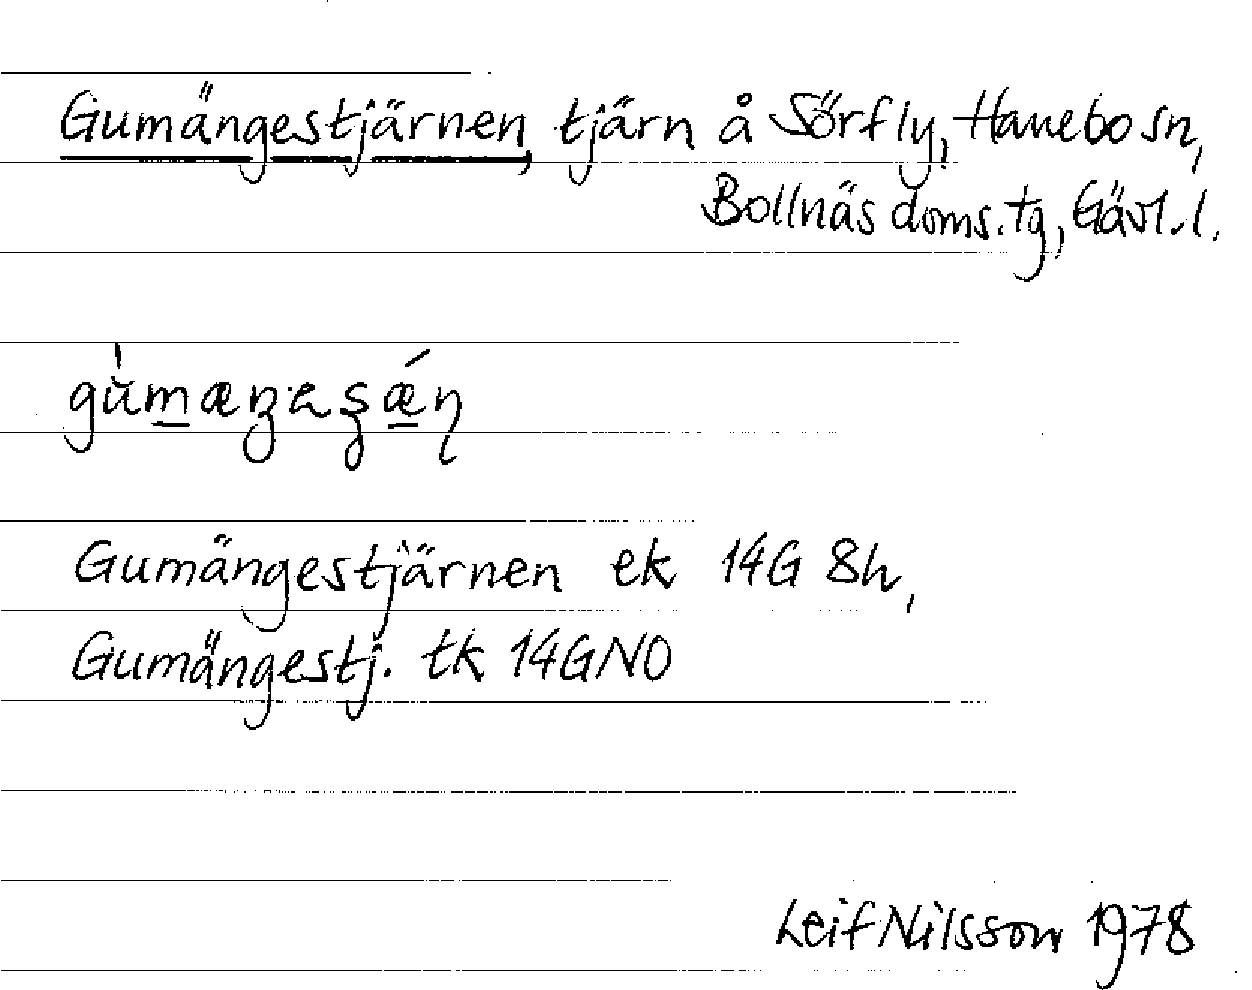 Gumängestjärnen, tjärn å Sörfly, Hanebo sn,
Bollnäs doms.tg, Gävl.l.
Gumängestjärnen ek 14G 8h,
Gumängestj. tk 14GNO
Leif Nilsson 1978